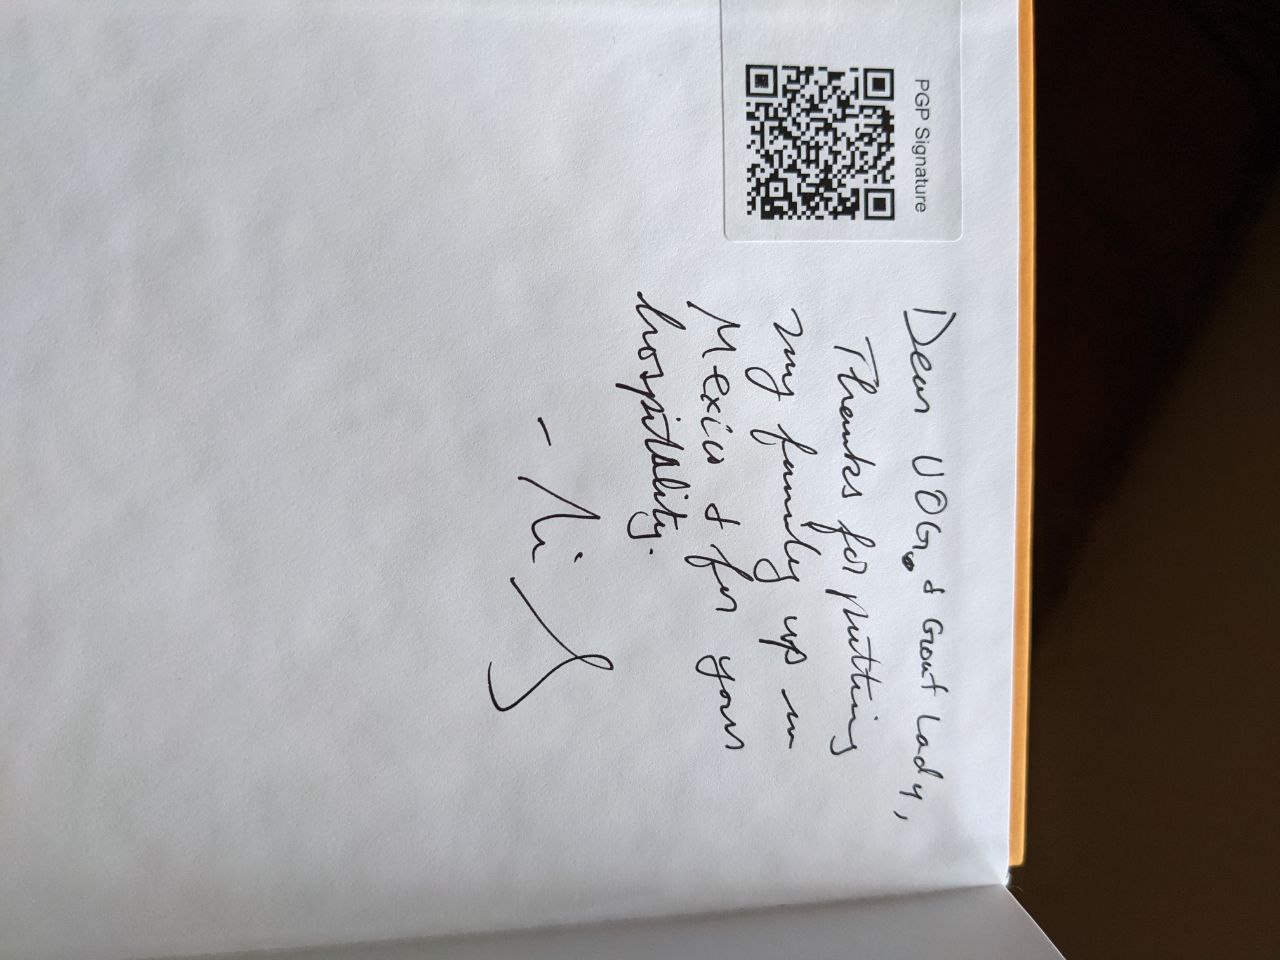 PGP Signature
Dear UOG, & Grout Lady,
Thanks for putting
my family up in
Mexico & for your
hospitality.